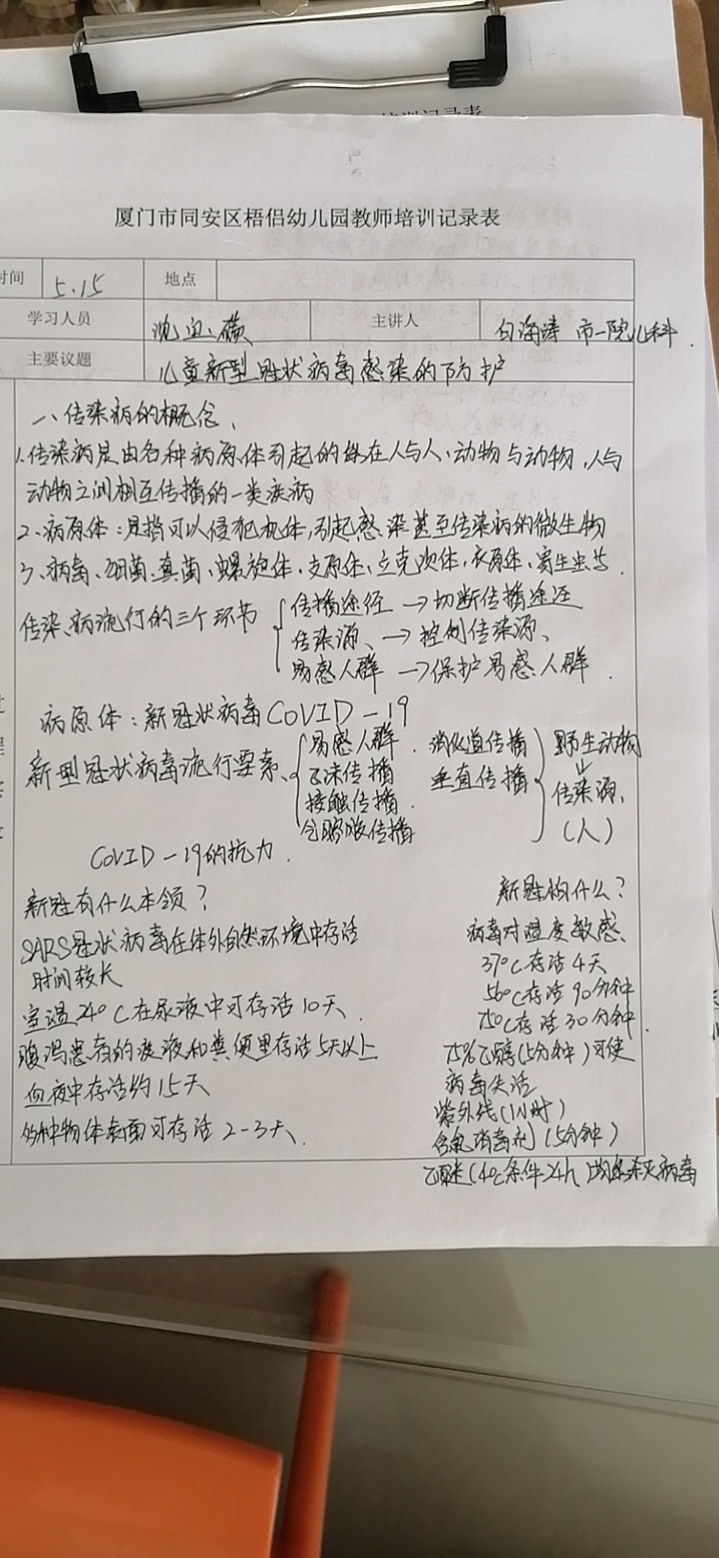 培训记录表
厦门市同安区梧侣幼儿园教师培训记录表
时间 5.15 地点
学习人员 主讲人 白海涛 市一院儿科.
主要议题 儿童新型冠状病毒感染的防护
一、传染病的概念、
1.传染病是由各种病原体引起的能在人与人、动物与动物,人与
动物之间相互传播的一类疾病
2、病原体:是指可以侵犯机体,引起感染甚至传染病的微生物
3、病毒、细菌、真菌、螺旋体、支原体、立克次体、衣原体、寄生虫等.
传染病流行的三个环节
传播途径→切断传播途径
传染源、→控制传染源、
易感人群→保护易感人群.
病原体:新冠状病毒COVID-19
新型冠状病毒流行要素、
易感人群. 消化道传播 野生动物
飞沫传播 垂直传播 ↓
接触传播. 传染源、
传播 (人)
COVID-19的抗力.
新冠有什么本领?
SARS冠状病毒在体外自然环境中存活
时间较长
室温24°C在尿液中可存活10天.
腹泻患者的液和粪便里存活5天以上
血液中存活约15天
各种物体表面可存活2-3天.
新冠怕什么?
病毒对温度敏感、
37°C存活4天
56°C存活90分钟
75°C存活30分钟.
75%乙醇(5分钟)可使
病毒失活
紫外线(1小时)
含氯消毒剂(5分钟)
乙醚(4°C条件24h)均能杀灭病毒